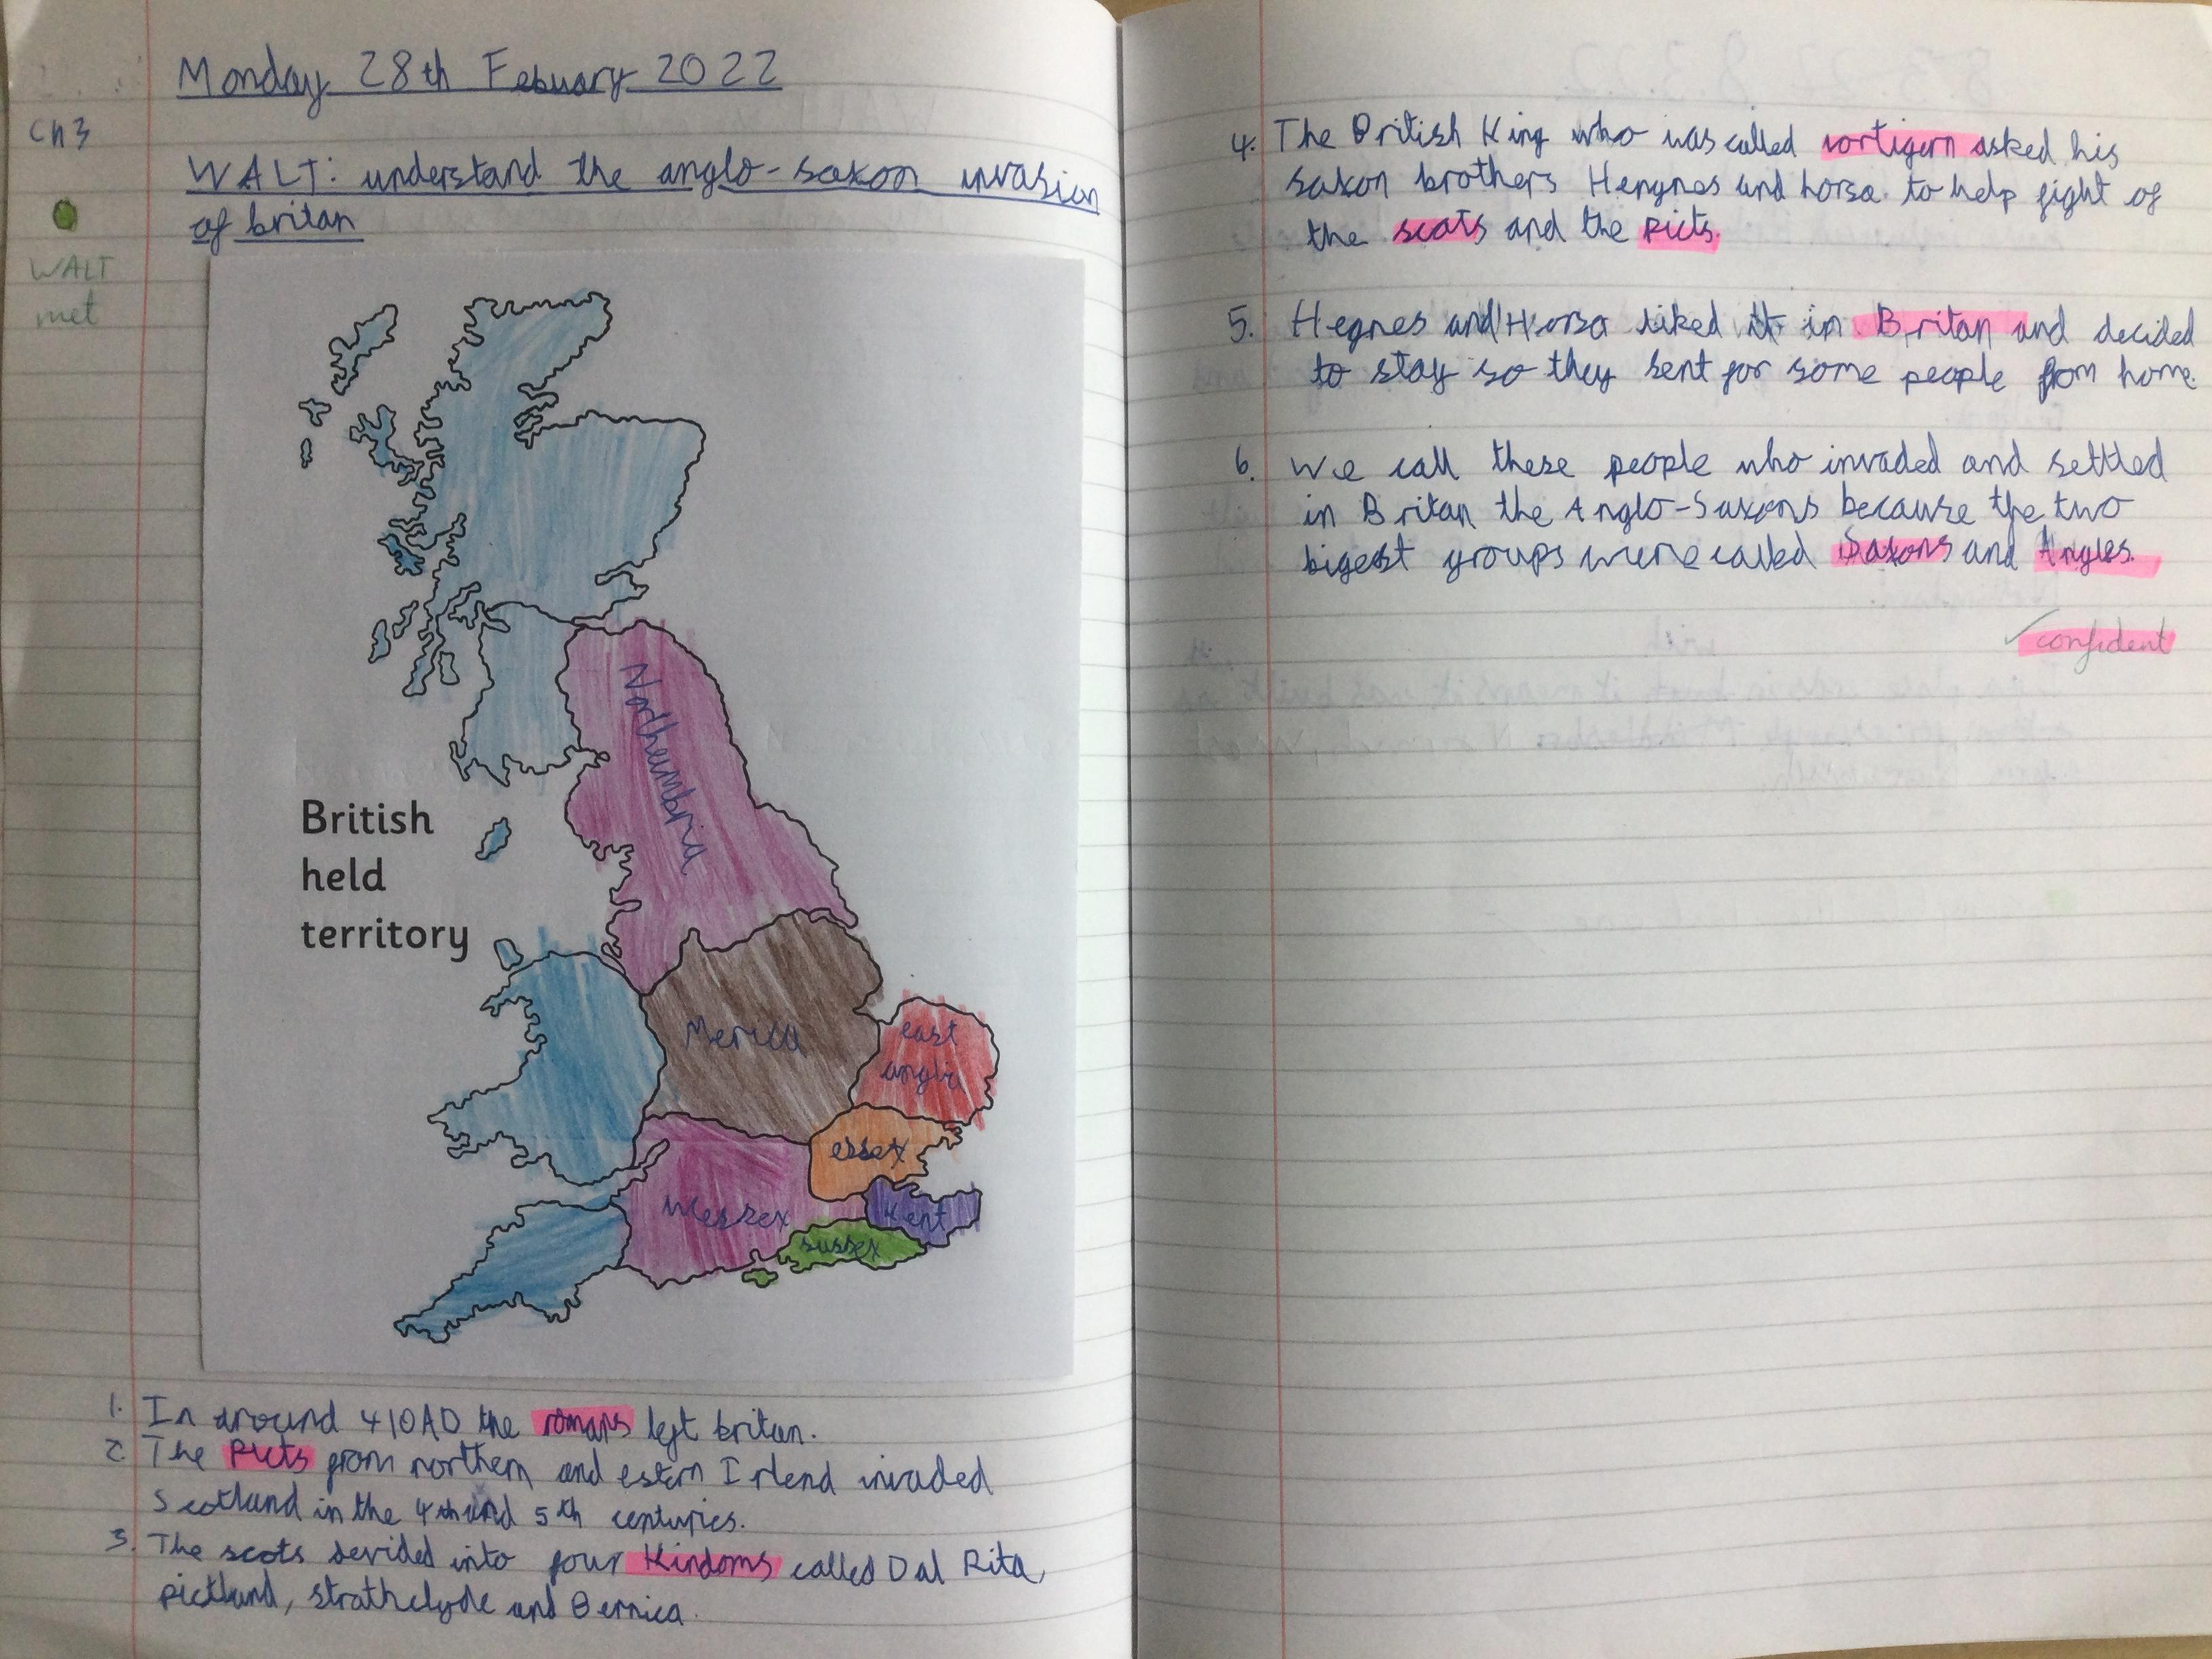 Monday 28th Febuary 2022
Ch3
WALT: understand the anglo-saxon invasion
of britan
WALT
met
Northeumbria
British
held
territory
Merica
east
anglia
essex
Kent
Wessex
sussex
1. In around 410AD the romans left britan.
2. The Picts from northern and estern Irlend invaded
Scotland in the 4th and 5th centuries.
3. The scots devided into four Kindoms called Dal Rita,
pictland, strathclyde and Bernica.
4. The British King who was called vortigern asked his
saxon brothers Hengnes and horsa to help fight of
the scots and the picts.
5. Hegnes and Horsa liked it in Britan and decided
to stay so they sent for some people from home.
6. We call these people who invaded and settled
in Britan the Anglo-Saxons because the two
bigest groups were called Saxons and Angles.
✓confident